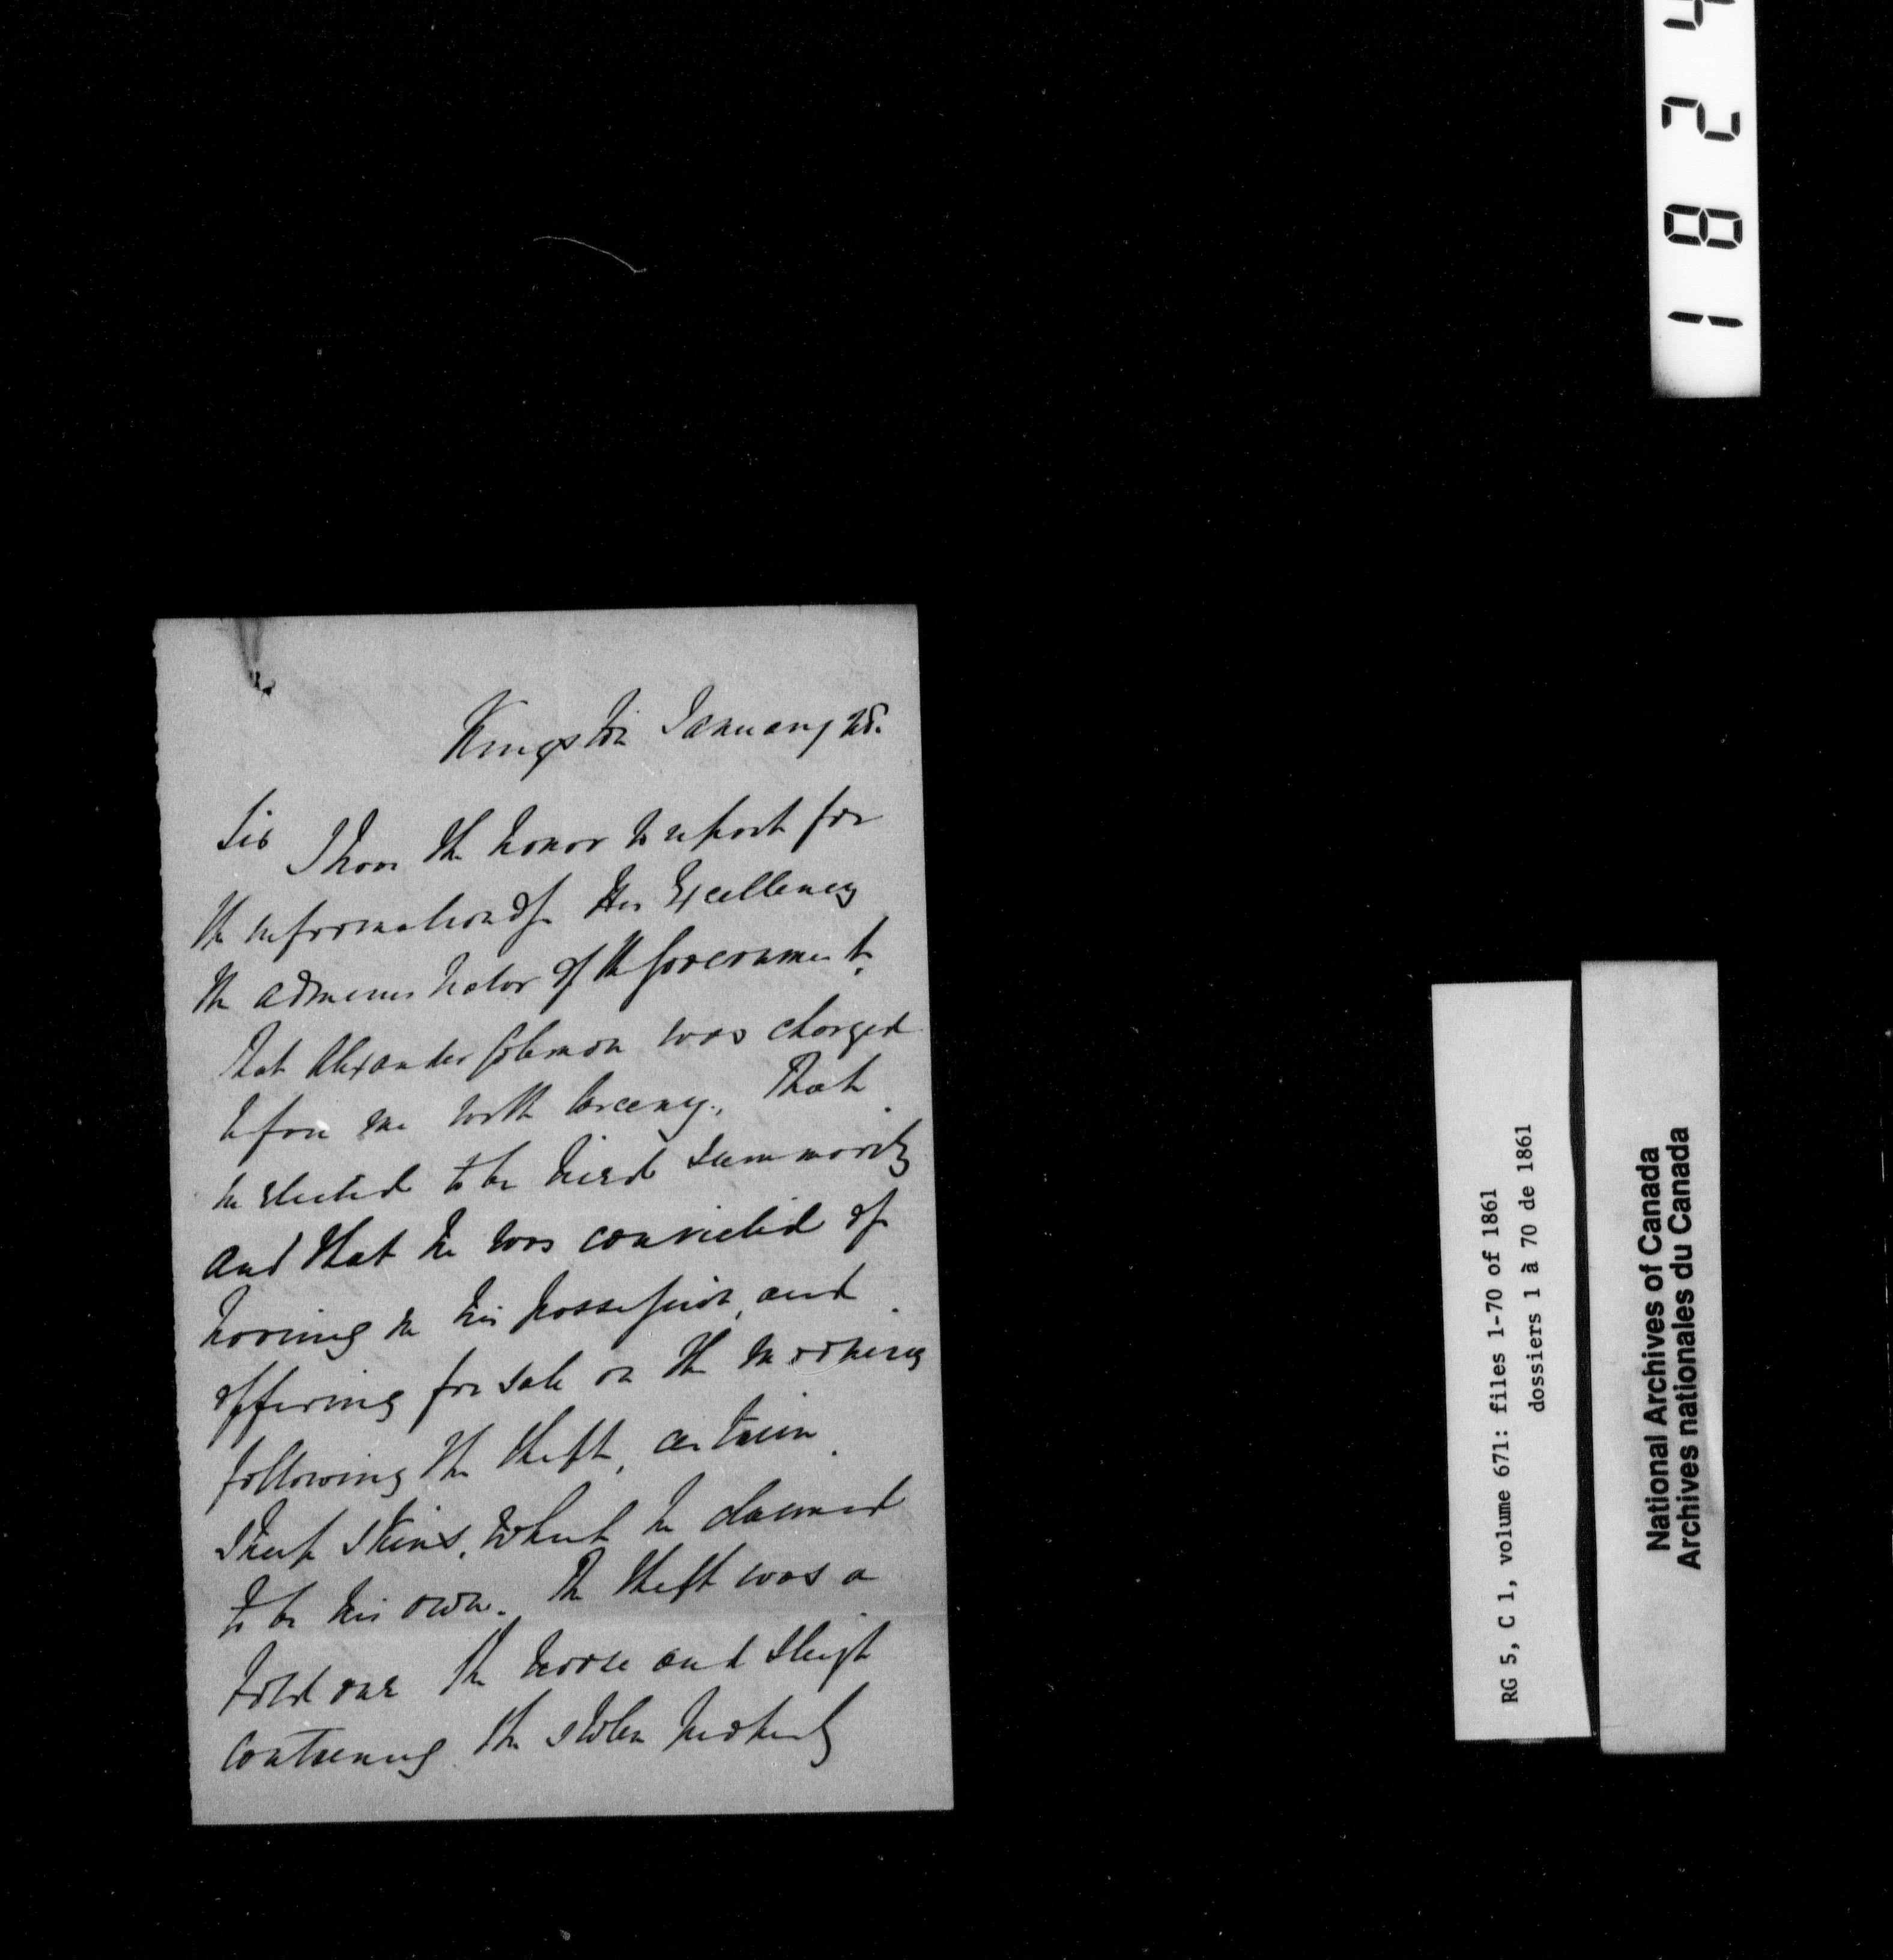 Kingston January 28.
Sir I have the honor to report for
the information of His Excellency
the administrator of the Government,
that Alexander Coleman was charged
before me with larceny, That
he elected to be tried summarily
and that he was convicted of
having in his possession, and
offering for sale on the morning
following the theft, certain
sheep skins, which he claimed
to be his own. The theft was a
bold one the horse and sleigh
containing the stolen property
1 8 2 4
RG 5, C 1, volume 671: files 1-70 of 1861
dossiers 1 à 70 de 1861
National Archives of Canada
Archives nationales du Canada